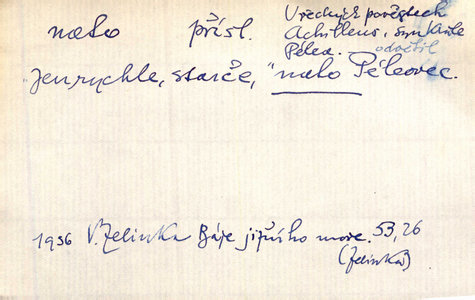 nato přísl. V řeckých pověstech
Achilleus, syn krále
Pélea. odvětil
"Jen rychle, starče," nato Péleovec.
1936 V. Zelinka Báje jižního moře. 53, 26
(Zelinka)